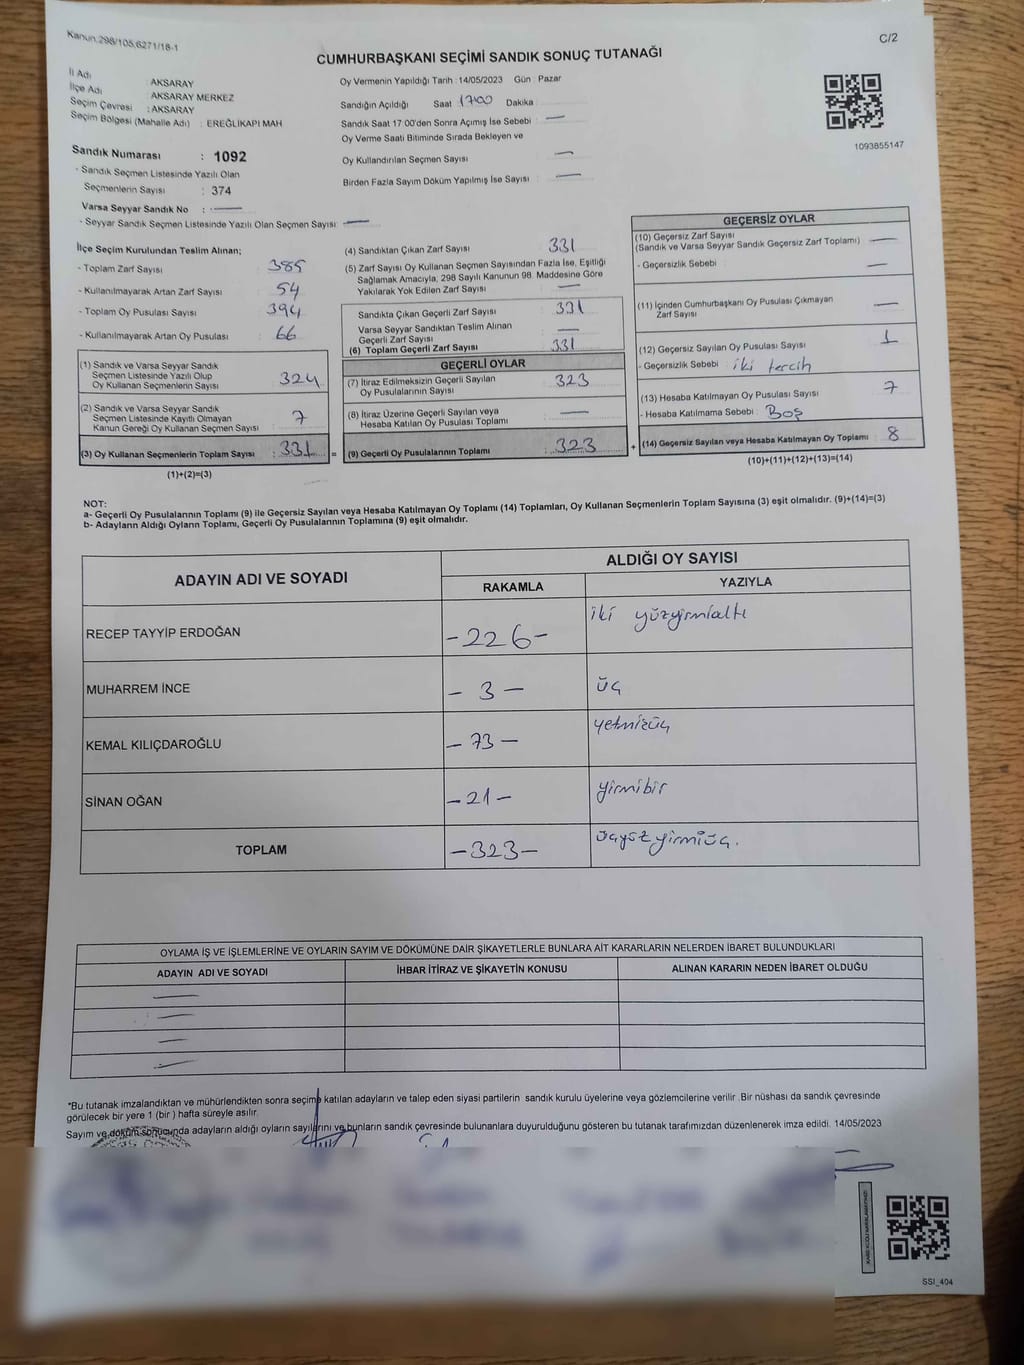 Kanun.298/105,6271/18-1
C/2
CUMHURBAŞKANI SEÇİMİ SANDIK SONUÇ TUTANAĞI
İl Adı : AKSARAY
İlçe Adı : AKSARAY MERKEZ
Seçim Çevresi : AKSARAY
Seçim Bölgesi (Mahalle Adı) : EREĞLİKAPI MAH
Sandık Numarası : 1092
- Sandık Seçmen Listesinde Yazılı Olan
Seçmenlerin Sayısı : 374
Varsa Seyyar Sandık No :
- Seyyar Sandık Seçmen Listesinde Yazılı Olan Seçmen Sayısı:
Oy Vermenin Yapıldığı Tarih :14/05/2023 Gün : Pazar
Sandığın Açıldığı Saat 17:00 Dakika
Sandık Saat 17:00'den Sonra Açımış İse Sebebi :
Oy Verme Saati Bitiminde Sırada Bekleyen ve
Oy Kullandırılan Seçmen Sayısı :
Birden Fazla Sayım Döküm Yapılmış İse Sayısı :
1093855147
İlçe Seçim Kurulundan Teslim Alınan;
- Toplam Zarf Sayısı : 385
- Kullanılmayarak Artan Zarf Sayısı : 54
- Toplam Oy Pusulası Sayısı : 394
- Kullanılmayarak Artan Oy Pusulası : 66
(1) Sandık ve Varsa Seyyar Sandık
Seçmen Listesinde Yazılı Olup
Oy Kullanan Seçmenlerin Sayısı : 324
(2) Sandık ve Varsa Seyyar Sandık
Seçmen Listesinde Kayıtlı Olmayan
Kanun Gereği Oy Kullanan Seçmen Sayısı : 7
(3) Oy Kullanan Seçmenlerin Toplam Sayısı : 331 =
(1)+(2)=(3)
(4) Sandıktan Çıkan Zarf Sayısı : 331
(5) Zarf Sayısı Oy Kullanan Seçmen Sayısından Fazla İse, Eşitliği
Sağlamak Amacıyla, 298 Sayılı Kanunun 98. Maddesine Göre
Yakılarak Yok Edilen Zarf Sayısı :
Sandıkta Çıkan Geçerli Zarf Sayısı : 331
Varsa Seyyar Sandıktan Teslim Alınan
Geçerli Zarf Sayısı :
(6) Toplam Geçerli Zarf Sayısı : 331
GEÇERLİ OYLAR
(7) İtiraz Edilmeksizin Geçerli Sayılan
Oy Pusulalarının Sayısı : 323
(8) İtiraz Üzerine Geçerli Sayılan veya
Hesaba Katılan Oy Pusulası Toplamı :
(9) Geçerli Oy Pusulalarının Toplamı : 323 +
GEÇERSİZ OYLAR
(10) Geçersiz Zarf Sayısı
(Sandık ve Varsa Seyyar Sandık Geçersiz Zarf Toplamı) :
- Geçersizlik Sebebi :
(11) İçinden Cumhurbaşkanı Oy Pusulası Çıkmayan
Zarf Sayısı :
(12) Geçersiz Sayılan Oy Pusulası Sayısı : 1
- Geçersizlik Sebebi : iki tercih
(13) Hesaba Katılmayan Oy Pusulası Sayısı : 7
- Hesaba Katılmama Sebebi : Boş
(14) Geçersiz Sayılan veya Hesaba Katılmayan Oy Toplamı : 8
(10)+(11)+(12)+(13)=(14)
NOT:
a- Geçerli Oy Pusulalarının Toplamı (9) ile Geçersiz Sayılan veya Hesaba Katılmayan Oy Toplamı (14) Toplamları, Oy Kullanan Seçmenlerin Toplam Sayısına (3) eşit olmalıdır. (9)+(14)=(3)
b- Adayların Aldığı Oyların Toplamı, Geçerli Oy Pusulalarının Toplamına (9) eşit olmalıdır.
ADAYIN ADI VE SOYADI
ALDIĞI OY SAYISI
RAKAMLA YAZIYLA
RECEP TAYYİP ERDOĞAN -226- iki yüzyirmialtı
MUHARREM İNCE - 3 - üç
KEMAL KILIÇDAROĞLU - 73 - yetmişüç
SİNAN OĞAN -21- yirmibir
TOPLAM -323- üçyüz yirmiüç.
OYLAMA İŞ VE İŞLEMLERİNE VE OYLARIN SAYIM VE DÖKÜMÜNE DAİR ŞİKAYETLERLE BUNLARA AİT KARARLARIN NELERDEN İBARET BULUNDUKLARI
ADAYIN ADI VE SOYADI İHBAR İTİRAZ VE ŞİKAYETİN KONUSU ALINAN KARARIN NEDEN İBARET OLDUĞU
*Bu tutanak imzalandıktan ve mühürlendikten sonra seçime katılan adayların ve talep eden siyasi partilerin sandık kurulu üyelerine veya gözlemcilerine verilir .Bir nüshası da sandık çevresinde
görülecek bir yere 1 (bir ) hafta süreyle asılır.
Sayım ve döküm sonucunda adayların aldığı oyların sayılarını ve bunların sandık çevresinde bulunanlara duyurulduğunu gösteren bu tutanak tarafımızdan düzenlenerek imza edildi. 14/05/2023
SSI_404